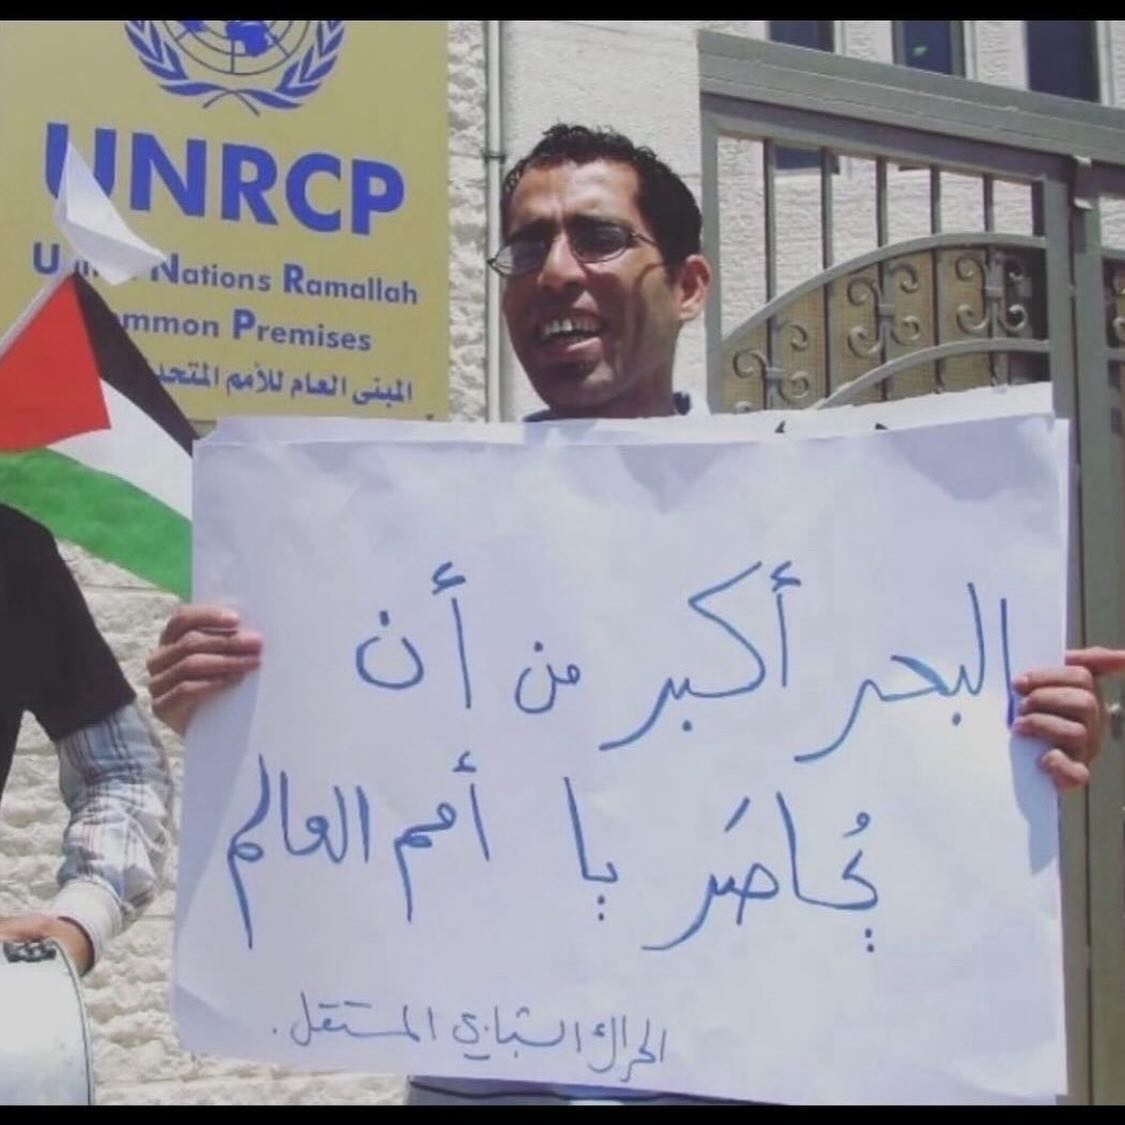 UNRCP
United Nations Ramallah
Common Premises
المبنى العام للأمم المتحدة
البحر أكبر من أن
يُحاصَر يا أمم العالم
الحراك الشبابي المستقل.